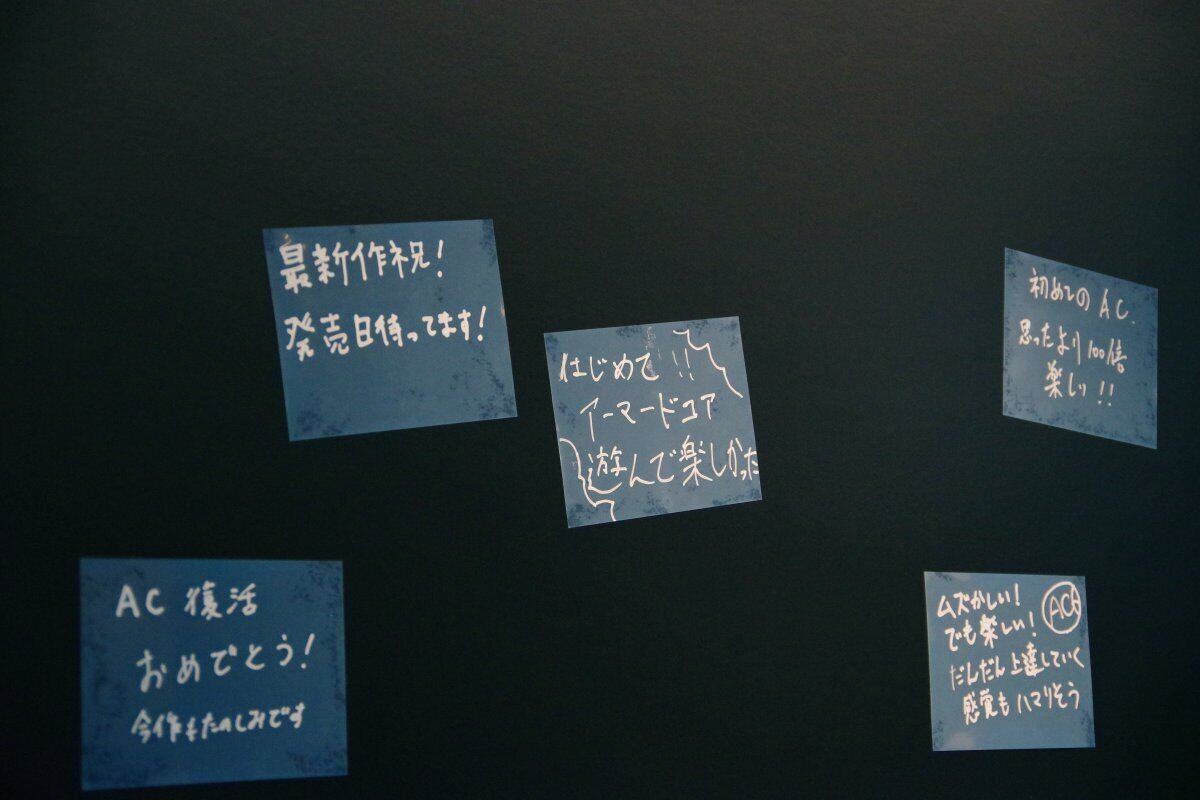 最新作祝!
発売日待ってます!
はじめて!!
アーマードコア
遊んで楽しかった
初めてのAC.
思ったより100倍
楽しい!!
AC復活
おめでとう!
今作もたのしみです
ムズかしい!
でも楽しい!
AC6
だんだん上達していく
感覚もハマりそう